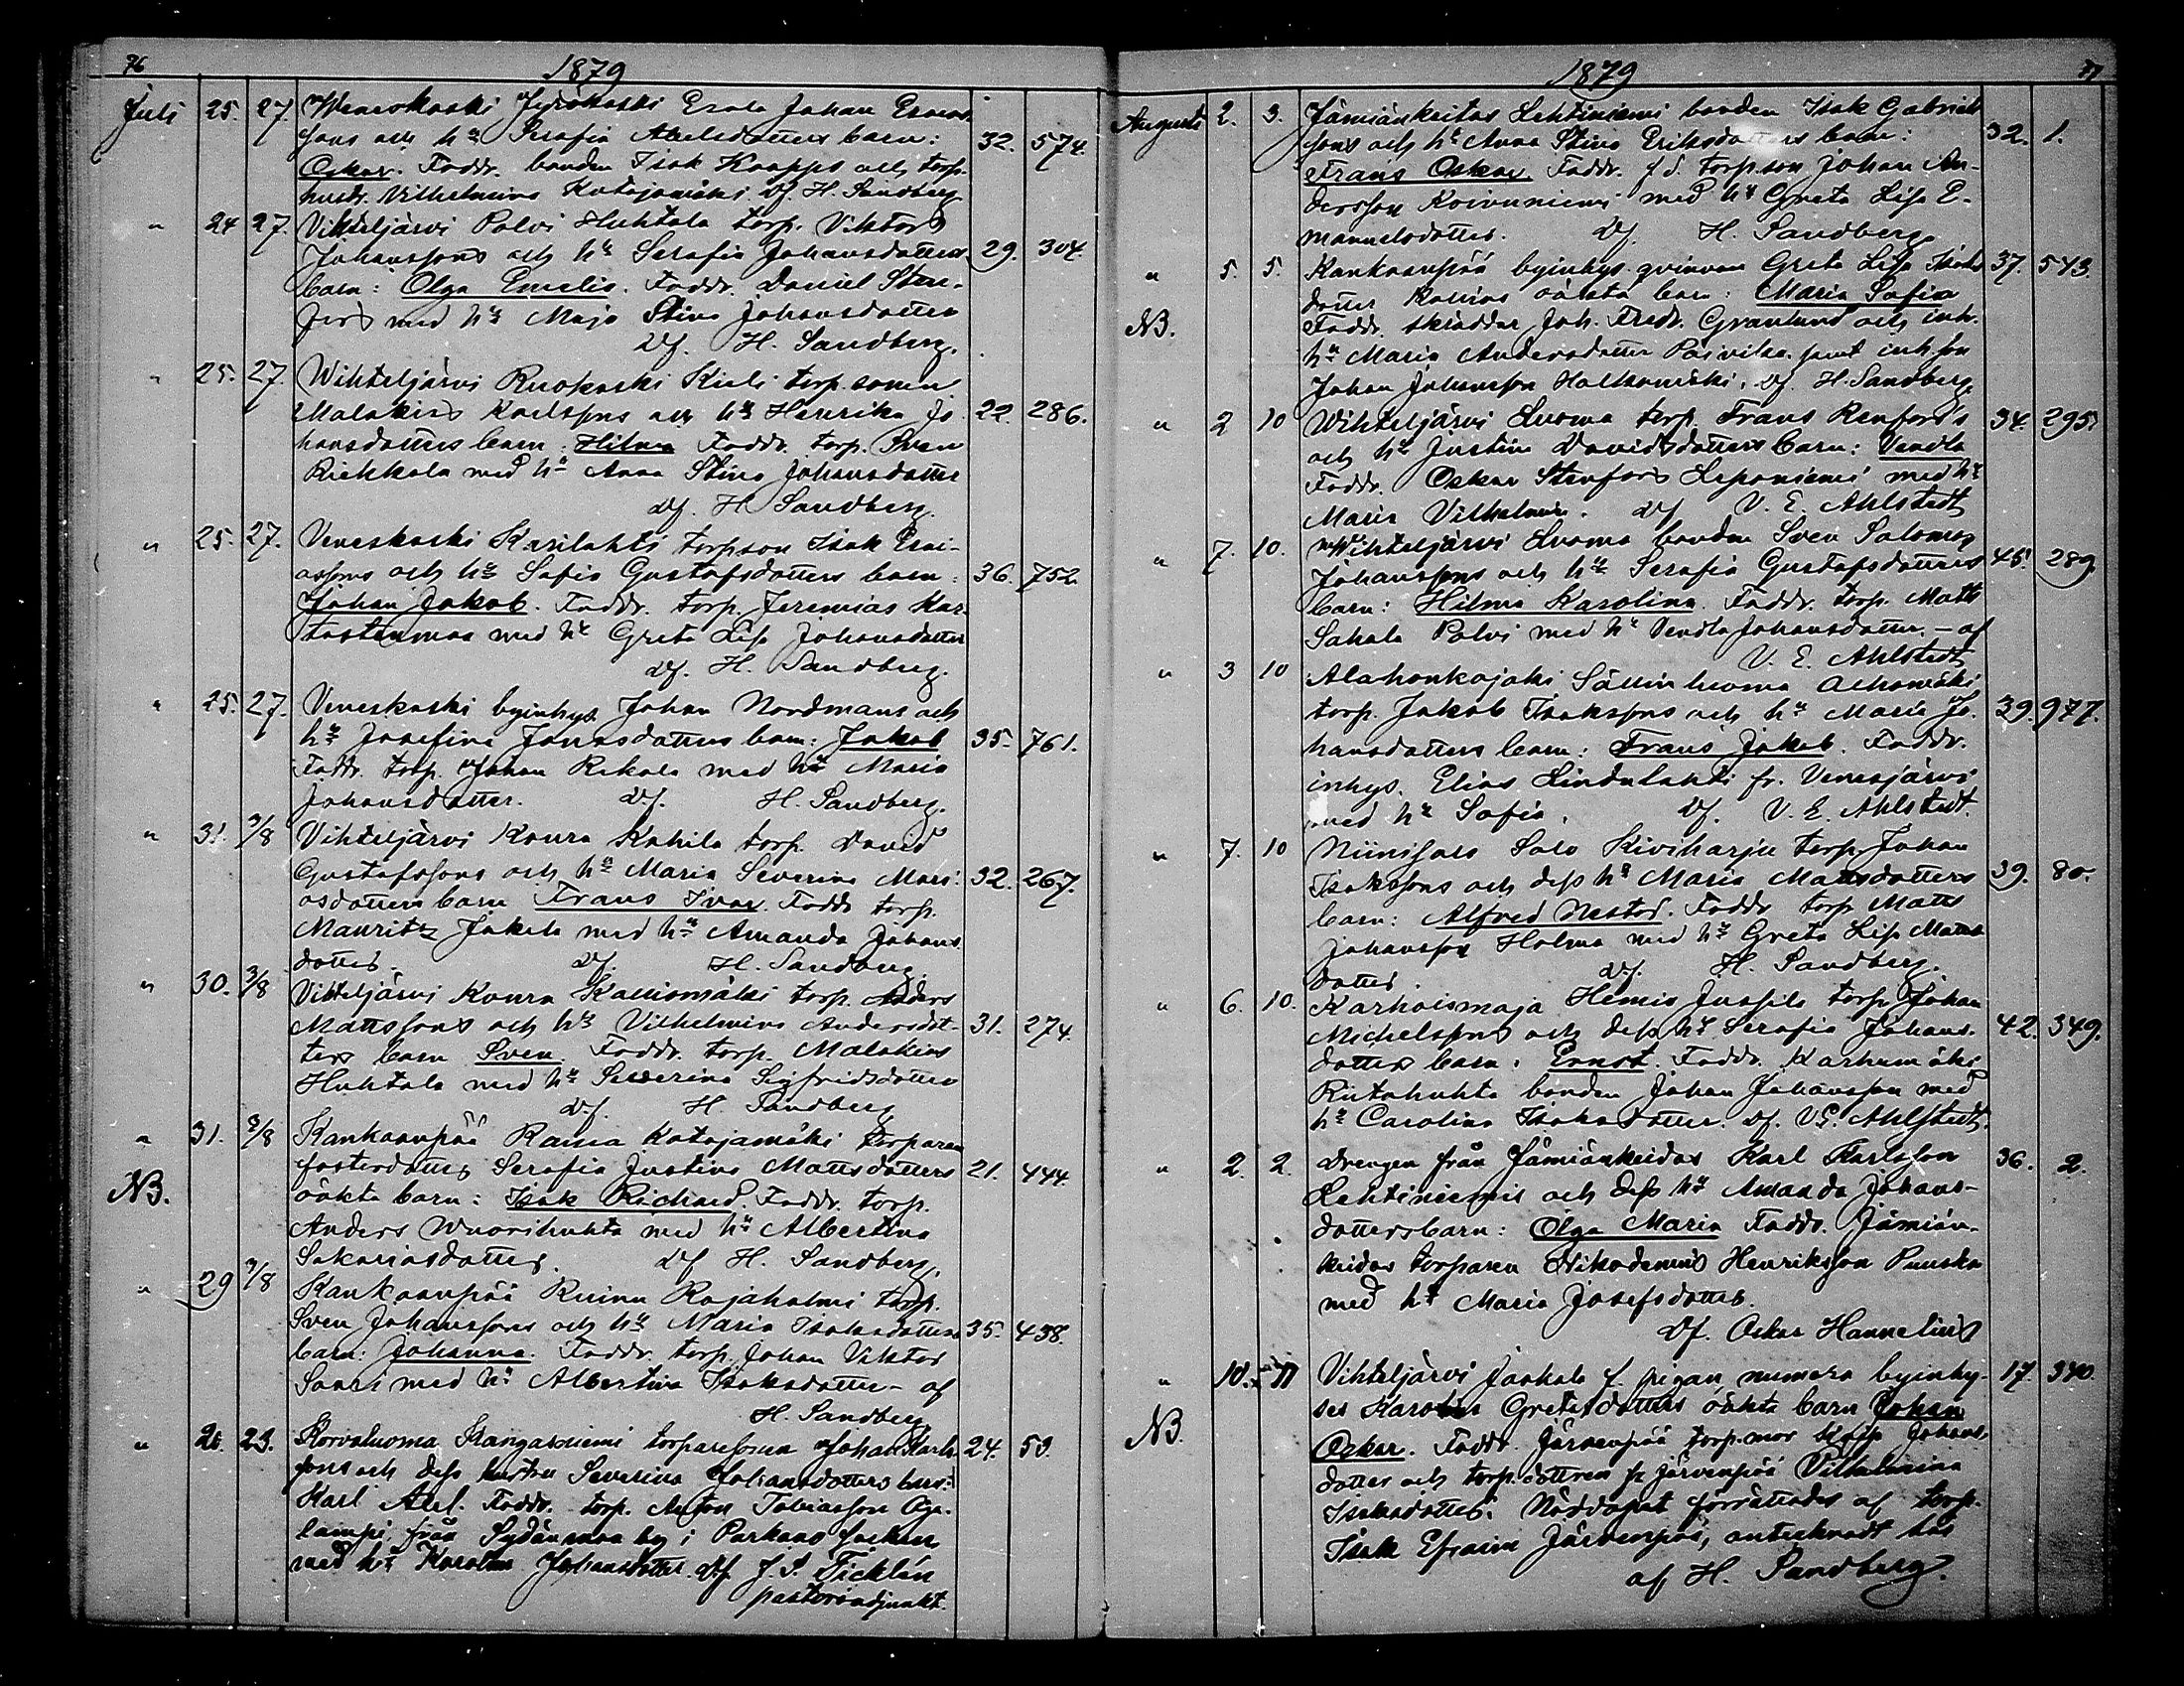 76
1879
Juli 25. 27. Weneskoski Jyräkoski Erola Johan Esaias
sons och hu Serafia Axelsdotters barn: 32. 574.
Oskar. Faddr. bonden Isak Knappi och torp.
hustr. Vilhelmina Katajamäki. Df. H. Sandberg
" 24 27. Vihteljärvi Polvi Huhtala torp. Viktor
Johanssons och hu Serafia Johansdotters 29. 304.
barn: Olga Emelie. Faddr. Daniel Sten-
fors med hu Maja Stina Johansdotter
Df. H. Sandberg.
" 25. 27. Wihteljärvi Ruokoski Kieli torp.sonen
Malakias Karlssons och hu Henrika Jo- 22. 286.
hansdotters barn: Hilma Faddr. torp. Sven
Riekkola med hu Anna Stina Johansdotter
Df. H. Sandberg.
" 25. 27. Veneskoski Karilahti torpson Isak Esai-
assons och hu Sofia Gustafsdotters barn: 36. 752.
Johan Jakob. Faddr. torp. Jeremias Kar-
tastenmaa med hu Greta Lisa Johansdotter
Df. H. Sandberg.
" 25. 27. Veneskoski byinhys. Johan Nordmans och
hu Josefina Jonasdotters barn: Jakob 35. 761.
Faddr. torp. Johan Rekola med hu Maria
Johansdotter. Df. H. Sandberg.
" 31. 3/8 Vihteljärvi Koura Kahila torp. David
Gustafssons och hu Maria Severina Mari- 32. 267.
asdotters barn Frans Ivar. Faddr torp.
Mauritz Jakela med hu Amanda Johans
dotter. Df. H. Sandberg.
" 30. 3/8 Vihteljärvi Koura Kalliomäki torp. Anders
Mattssons och hu Vilhelmina Andersdot- 31. 274.
ters barn Sven. Faddr. torp. Malakias
Huhtala med hu Severina Sigfridsdotter
Df. H. Sandberg
" 31. 3/8 Kankaanpää Rama Katajamäki torparen
NB. fosterdotter Serafia Justina Mattsdotters 21. 444
oäkta barn: Isak Richard. Faddr. torp.
Anders Wuorihuhta med hu Albertina
Sakariasdotter. Df H. Sandberg.
" 29 3/8 Kankaanpää Ruinu Rajaholmi torp.
Sven Johanssons och hu Maria Isaksdotters 35. 438.
barn: Johanna. Faddr. torp. Johan Viktor
Saari med hu Albertina Isaksdotter - af
H. Sandberg
" 21. 23. Korvaluoma Kangasniemi torparesonen Johan Karls-
sons och dess hustru Severina Johansdotters barn: 24. 53.
Karl Axel. Faddr. torp. Anton Tobiasson Oja-
lampi från Sydänmaa by i Parkano socken
med hu Karolina Johansdotter. Df J. S. Ticklén
pastorsadjunkt.
1879
77
Augusti 2. 3. Jämiänkeitas Lehtiniemi bonden Isak Gabriels
sons och hu Anna Stina Eriksdotters barn: 32. 1.
Frans Oskar. Faddr. f d. torp.son Johan An-
dersson Koivuniemi med hu Greta Lisa E-
manuelsdotter. Df. H. Sandberg.
" 5. 5. Kankaanpää byinhys. qvinnan Greta Lisa Isaks 37. 543.
dotter Kallias oäkta barn: Maria Sofia
NB. Faddr. skräddar Joh. Fredr. Granlund och inh.
hu Maria Andersdotter Päivike samt inh.son
Johan Johansson Halkomäki. Df. H. Sandberg.
" 2 10 Wihteljärvi Luoma torp. Frans Renfors's 34. 295.
och hu Justina Davidsdotters barn: Vendla
Faddr. Oskar Stenfors Leponiemi med hu
Maria Vilhelmina. Df V. E. Ahlstedt
" 7. 10. Wihteljärvi Luoma bonden Sven Salomon
Johanssons och hu Serafia Gustafsdotters 45. 289.
barn: Hilma Karolina. Faddr. torp. Matts
Sakala Polvi med hu Vendla Johansdotter. - af
V. E. Ahlstedt
" 3 10 Alahonkajoki Sällin luoma Alhomäki
torp. Jakob Isakssons och hu Maria Jo- 39. 977.
hansdotters barn: Frans Jakob. Faddr.
inhys. Elias Lindulahti fr. Venesjärvi
med hu Sofia. Df. V. E. Ahlstedt.
" 7. 10 Niinisalo Salo Kiviharju torp. Johan
Isakssons och dess hu Maria Mattsdotters 39. 80.
barn: Alfred Nestor. Faddr torp Matts
Johansson Holma med hu Greta Lisa Matts
dotter. Df. H. Sandberg.
" 6. 10. Karhoismaja Hemis Jussila torp Johan
Michelssons och dess hu Serafia Johans- 42. 349.
dotters barn: Ernst. Faddr. Karhumäki
Riitahuhta bonden Johan Johansson med
hu Carolina Isaksdotter. Df. V.E. Ahlstedt.
" 2. 2. Drengen från Jämiänkeidas Karl Karlsson 36. 2.
Lehtiniemis och dess hu Amanda Johans-
dottersbarn: Olga Maria Faddr. Jämiän-
keidas torparen Nikodemus Henriksson Punska
med hu Maria Josefsdotter.
Df. Oskar Hannelius
" 10. 17 Vihteljärvi Jaakola f. pigan numera byinhy- 17. 340.
NB. ses Karolina Gretasdotters oäkta barn Johan
Oskar. Faddr. Järvenpää torp.mor Kajsa Johans-
dotter och torp.dottren fr Järvenpää Vilhelmina
Isaksdotter. Nöddopet förrättades af torp.
Isak Efraim Järvenpää, antecknadt här
af H. Sandberg.